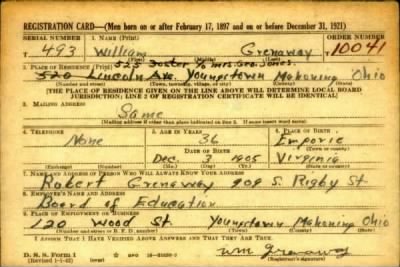 REGISTRATION CARD—(Men born on or after February 17, 1897 and on or before December 31, 1921)
SERIAL NUMBER 1. NAME (Print) ORDER NUMBER
T 493 William Grenaway 10041
525 Foster % Mrs. Geo. Jones.
2. PLACE OF RESIDENCE (Print)
520 Lincoln Ave. Youngstown Mahoning Ohio
[THE PLACE OF RESIDENCE GIVEN ON THE LINE ABOVE WILL DETERMINE LOCAL BOARD
JURISDICTION; LINE 2 OF REGISTRATION CERTIFICATE WILL BE IDENTICAL]
3. MAILING ADDRESS
Same
[Mailing address if other than place indicated on line 2. If same insert word same]
4. TELEPHONE 5. AGE IN YEARS 6. PLACE OF BIRTH
None 36 Emporie
DATE OF BIRTH
Dec. 3 1905 Virginia
(Exchange) (Number) (Mo.) (Day) (Yr.) (State or country)
7. NAME AND ADDRESS OF PERSON WHO WILL ALWAYS KNOW YOUR ADDRESS
Robert Grenaway 909 S. Rigby St.
8. EMPLOYER'S NAME AND ADDRESS
Board of Education
9. PLACE OF EMPLOYMENT OR BUSINESS
120 Wood St. Youngstown Mahoning Ohio
(Number and street or R. F. D. number) (Town) (County) (State)
I AFFIRM THAT I HAVE VERIFIED ABOVE ANSWERS AND THAT THEY ARE TRUE.
D. S. S. Form 1
(Revised 1-1-42) (over) GPO
Wm Grenaway